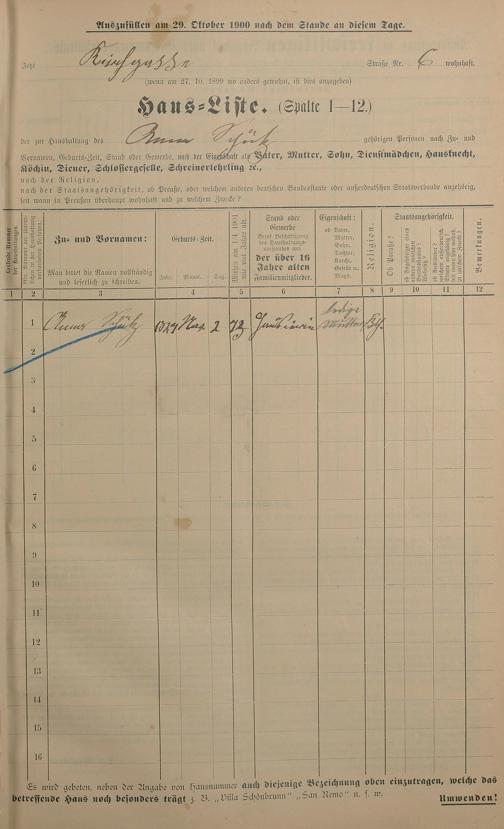 Auszufüllen am 29. Oktober 1900 nach dem Stande an diesem Tage.
Jetzt Kirchgasse Straße Nr. 6 wohnhaft.
(wenn am 27. 10. 1899 wo anders gewohnt, ist dies anzugeben)
Haus=Liste. (Spalte 1—12.)
der zur Haushaltung des Anna Schütz gehörigen Personen nach Zu= und
Vornamen, Geburts=Zeit, Stand oder Gewerbe, nach der Eigenschaft als Vater, Mutter, Sohn, Dienstmädchen, Hausknecht,
Köchin, Diener, Schlossergeselle, Schreinerlehrling ꝛc.,
nach der Religion,
nach der Staatsangehörigkeit, ob Preuße, oder welchem anderen deutschen Bundesstaate oder außerdeutschen Staatsverbande angehörig,
seit wann in Preußen überhaupt wohnhaft und zu welchem Zwecke?
Zu= und Vornamen:
Man bittet die Namen vollständig
und leserlich zu schreiben.
Geburts=Zeit.
Jahr. Monat. Tag.
Stand oder
Gewerbe
der über 16
Jahre alten
Familienmitglieder.
Eigenschaft:
ob Vater,
Mutter,
Sohn,
Tochter,
Knecht,
Geselle u.
Magd.
Religion.
Staatsangehörigkeit.
Ob Preuße?
Bemerkungen.
1 2 3 4 5 6 7 8 9 10 11 12
1 Anna Schütz 2 73
2
3
4
5
6
7
8
9
10
11
12
13
14
15
16
Es wird gebeten, neben der Angabe von Hausnummer auch diejenige Bezeichnung oben einzutragen, welche das
betreffende Haus noch besonders trägt z. B. „Villa Schönbrunn" „San Remo" u. s. w. Umwenden!